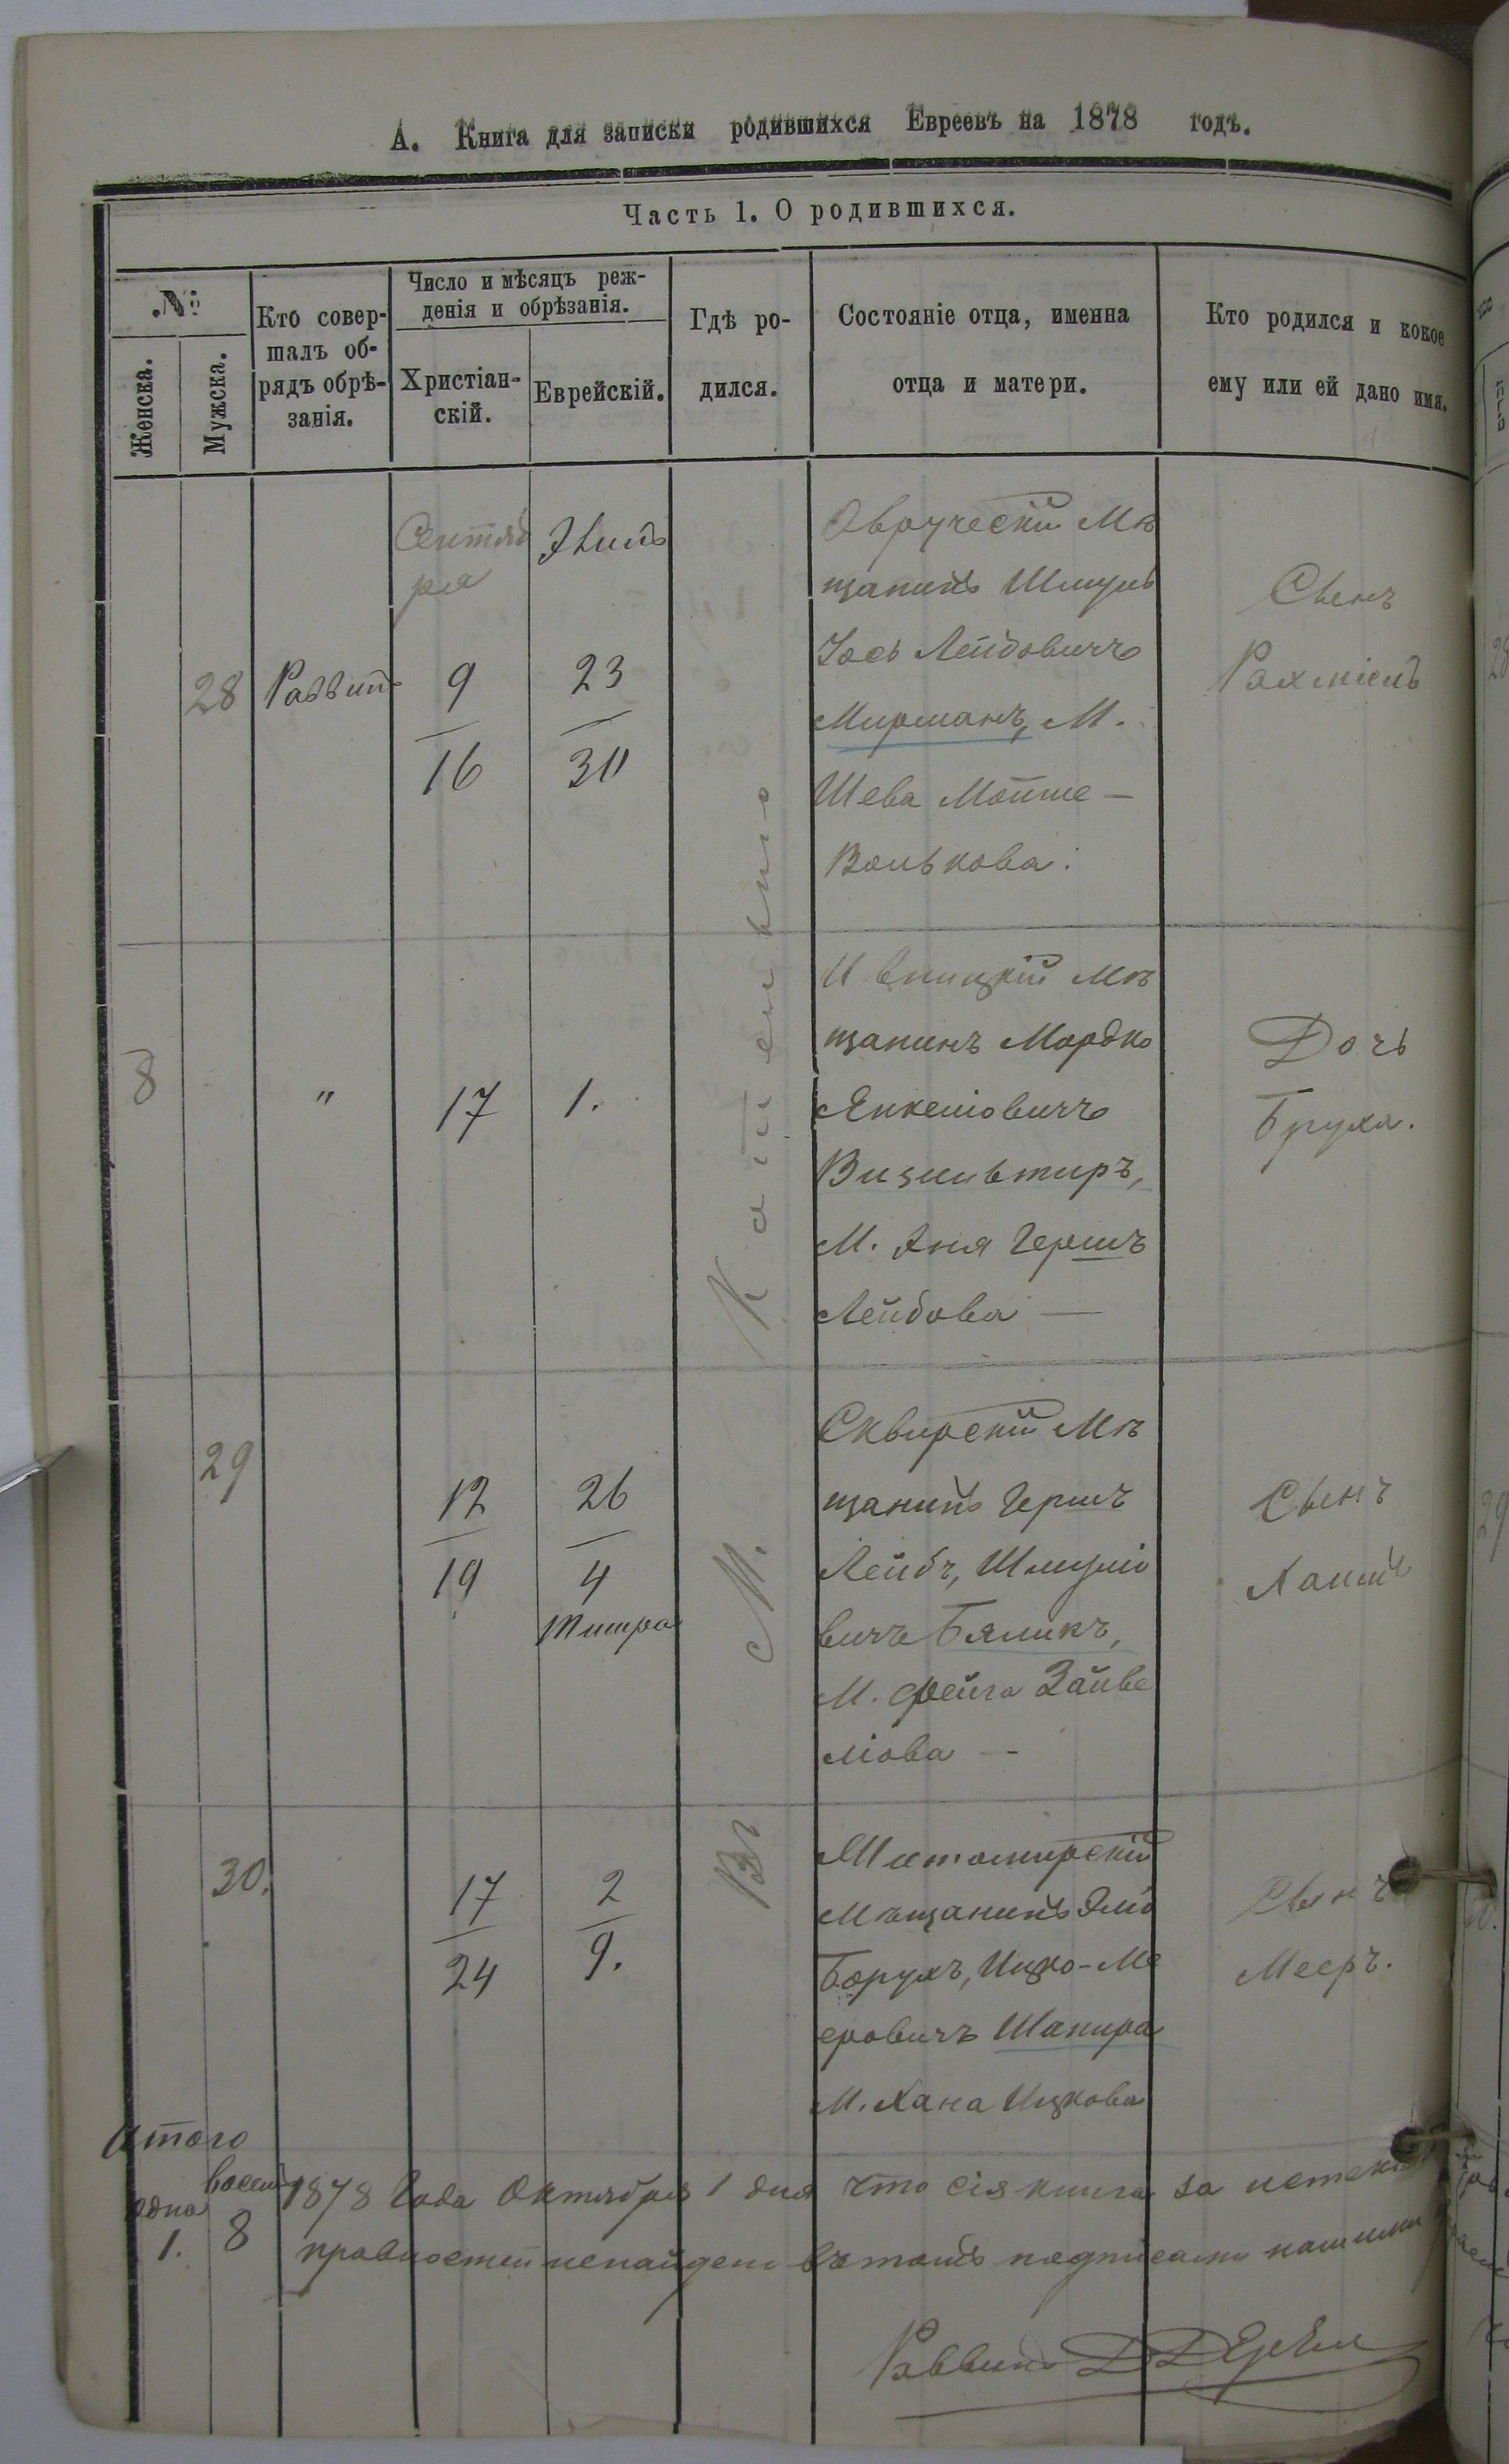 А. Книга для записки родившихся Евреевъ на 1878 годъ.
Часть 1. О родившихся.
№
Женска.
Мужска.
Кто совер-
шалъ об-
рядъ обрѣ-
занія.
Число и мѣсяцъ реж-
денія и обрѣзанія.
Христіан-
скій.
Еврейскій.
Гдѣ ро-
дился.
Состояніе отца, именна
отца и матери.
Кто родился и кокое
ему или ей дано имя.
Въ М. Котельню
28
Раввинъ
Сентяб
ря
9
16
Элулъ
23
30
Овруческій Мѣ
щанинъ Шмуль
Іось Лейбовичъ
Мирманъ, М.
Шева Мошке —
Волькова.
Сынъ
Рахміель
8
"
17
1.
Ивницкій мѣ
щанинъ Мордко
Янкеліовичъ
Визильтиръ,
М. Эня Гершъ
Лейбова —
Дочь
Бруха.
29
12
19
26
4
Тишра
Сквирскій Мѣ
щанинъ Гершъ
Лейбъ, Шмуліо
вичъ Бяликъ,
М. Фейга Зайве
ліова —
Сынъ
30.
17
24
2
9.
Житомирскій
Мѣщанинъ Эль
Борухъ, Ицко-Ме
еровичъ Шапира
М. Хана Ицкова
Сынъ
Мееръ.
Итого
одна
1.
восемь
8
1878 Года Октября 1 дня что сія книга за
въ томъ подписами нашими
Раввинъ